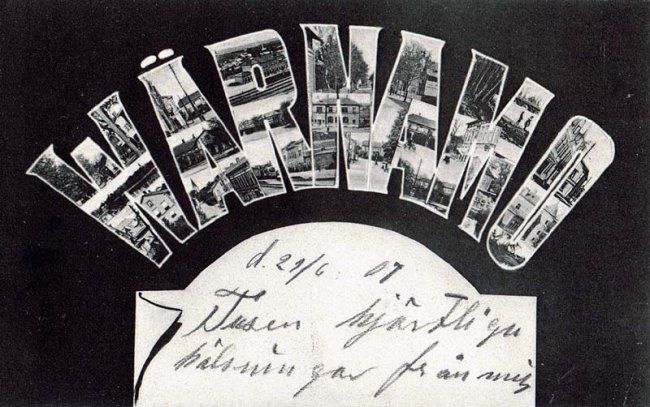 WÄRNAMO
d. 29/6. 07
Tusen hjärtliga
hälsningar från mig